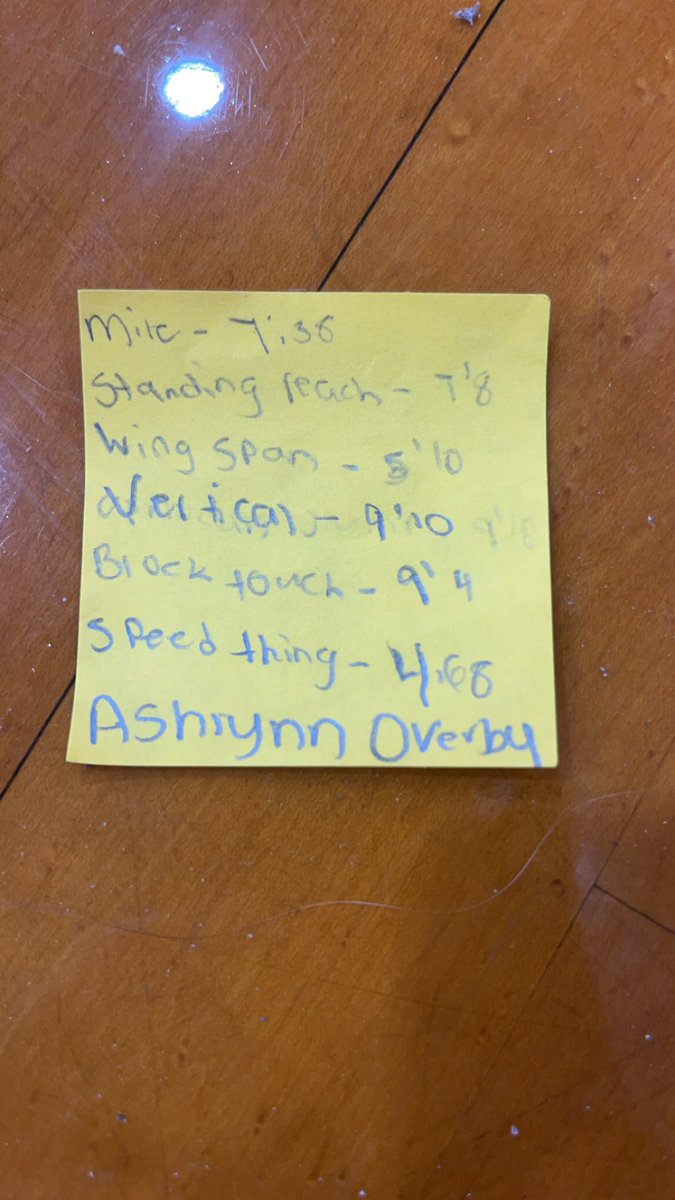 Mile - 7:36
Standing reach - 7'8
Wing span - 5'10
Vertical - 9'10
Block touch - 9'4
Speed thing - 4.68
Ashrynn Overby